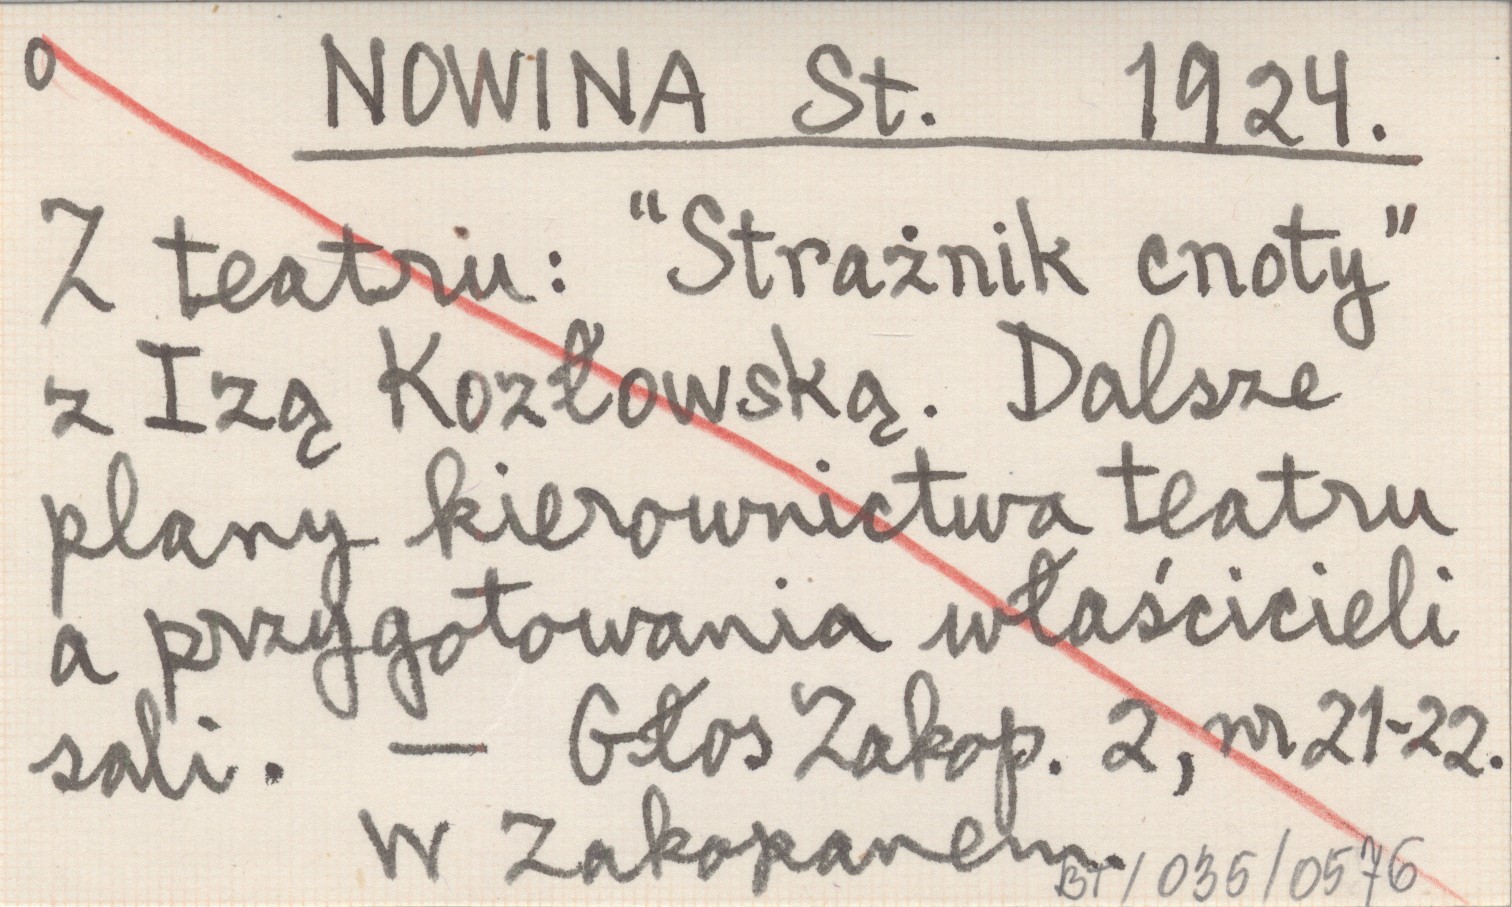 o NOWINA St. 1924.
Z teatru: "Strażnik cnoty"
z Izą Kozłowską. Dalsze
plany kierownictwa teatru
a przygotowania właścicieli
sali. — Głos Zakop. 2, nr 21-22.
W Zakopanem.
BT/035/0576